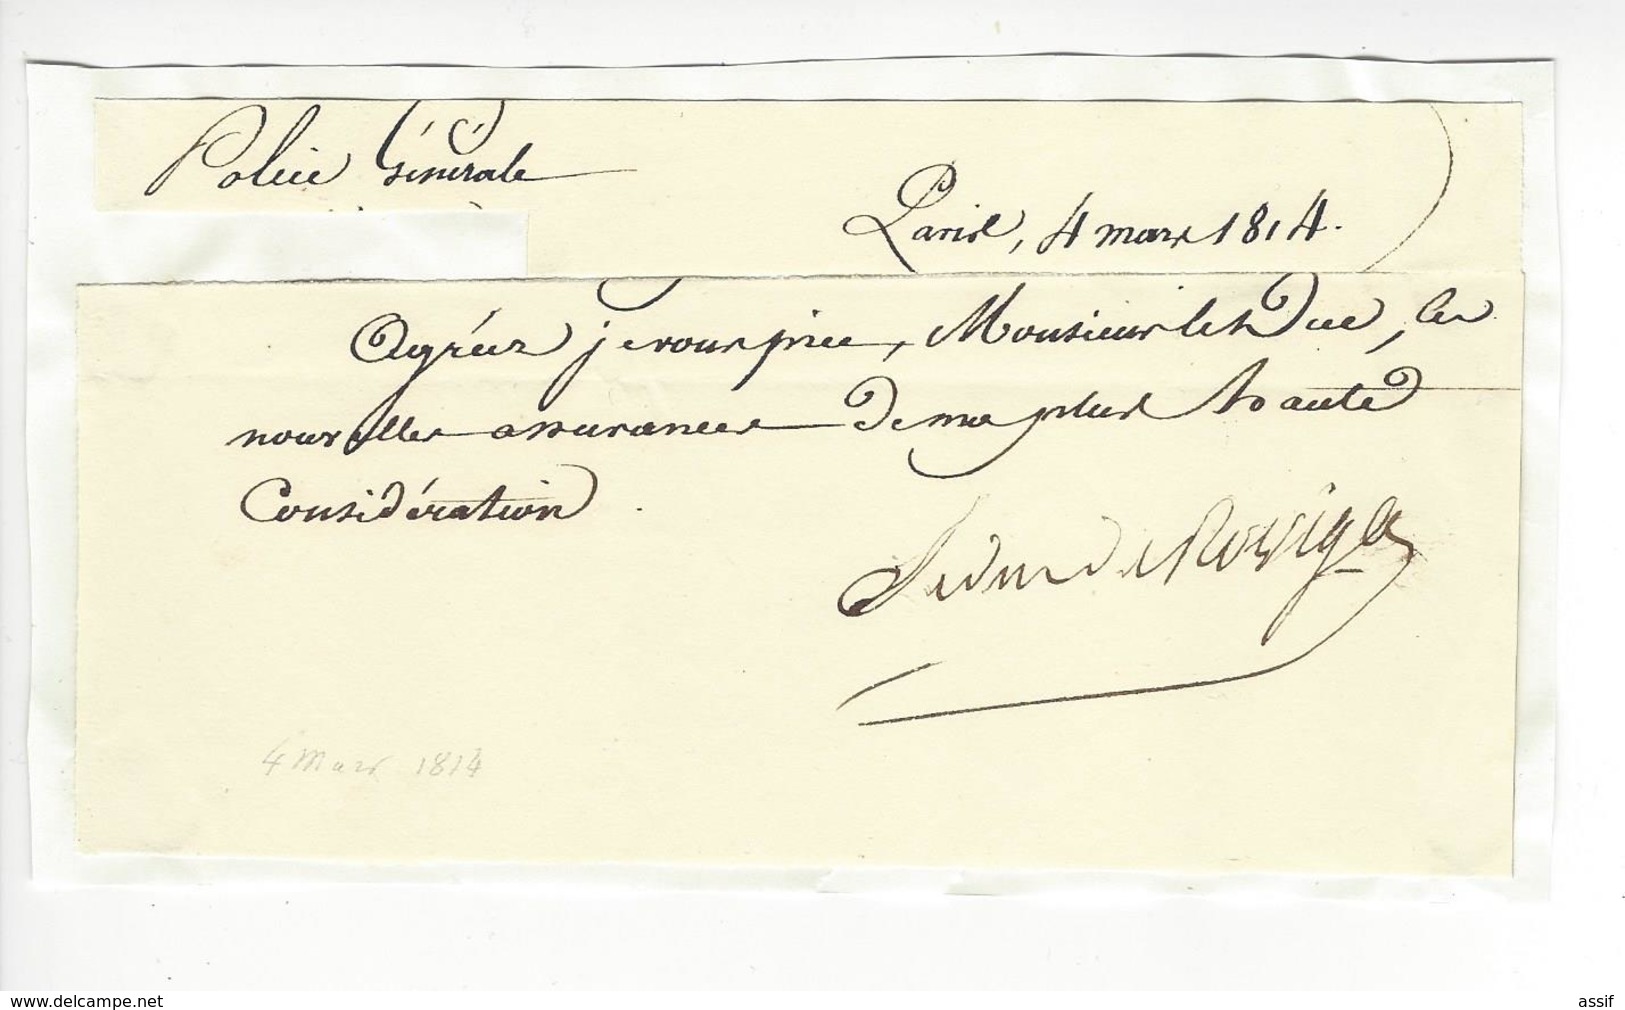 Police Générale
Paris, 4 mars 1814.
Agréez je vous prie, Monsieur le Duc, les
nouvelles assurances de ma plus haute
Considération.
Le duc de Rovigo
4 Mars 1814
www.delcampe.net
assif